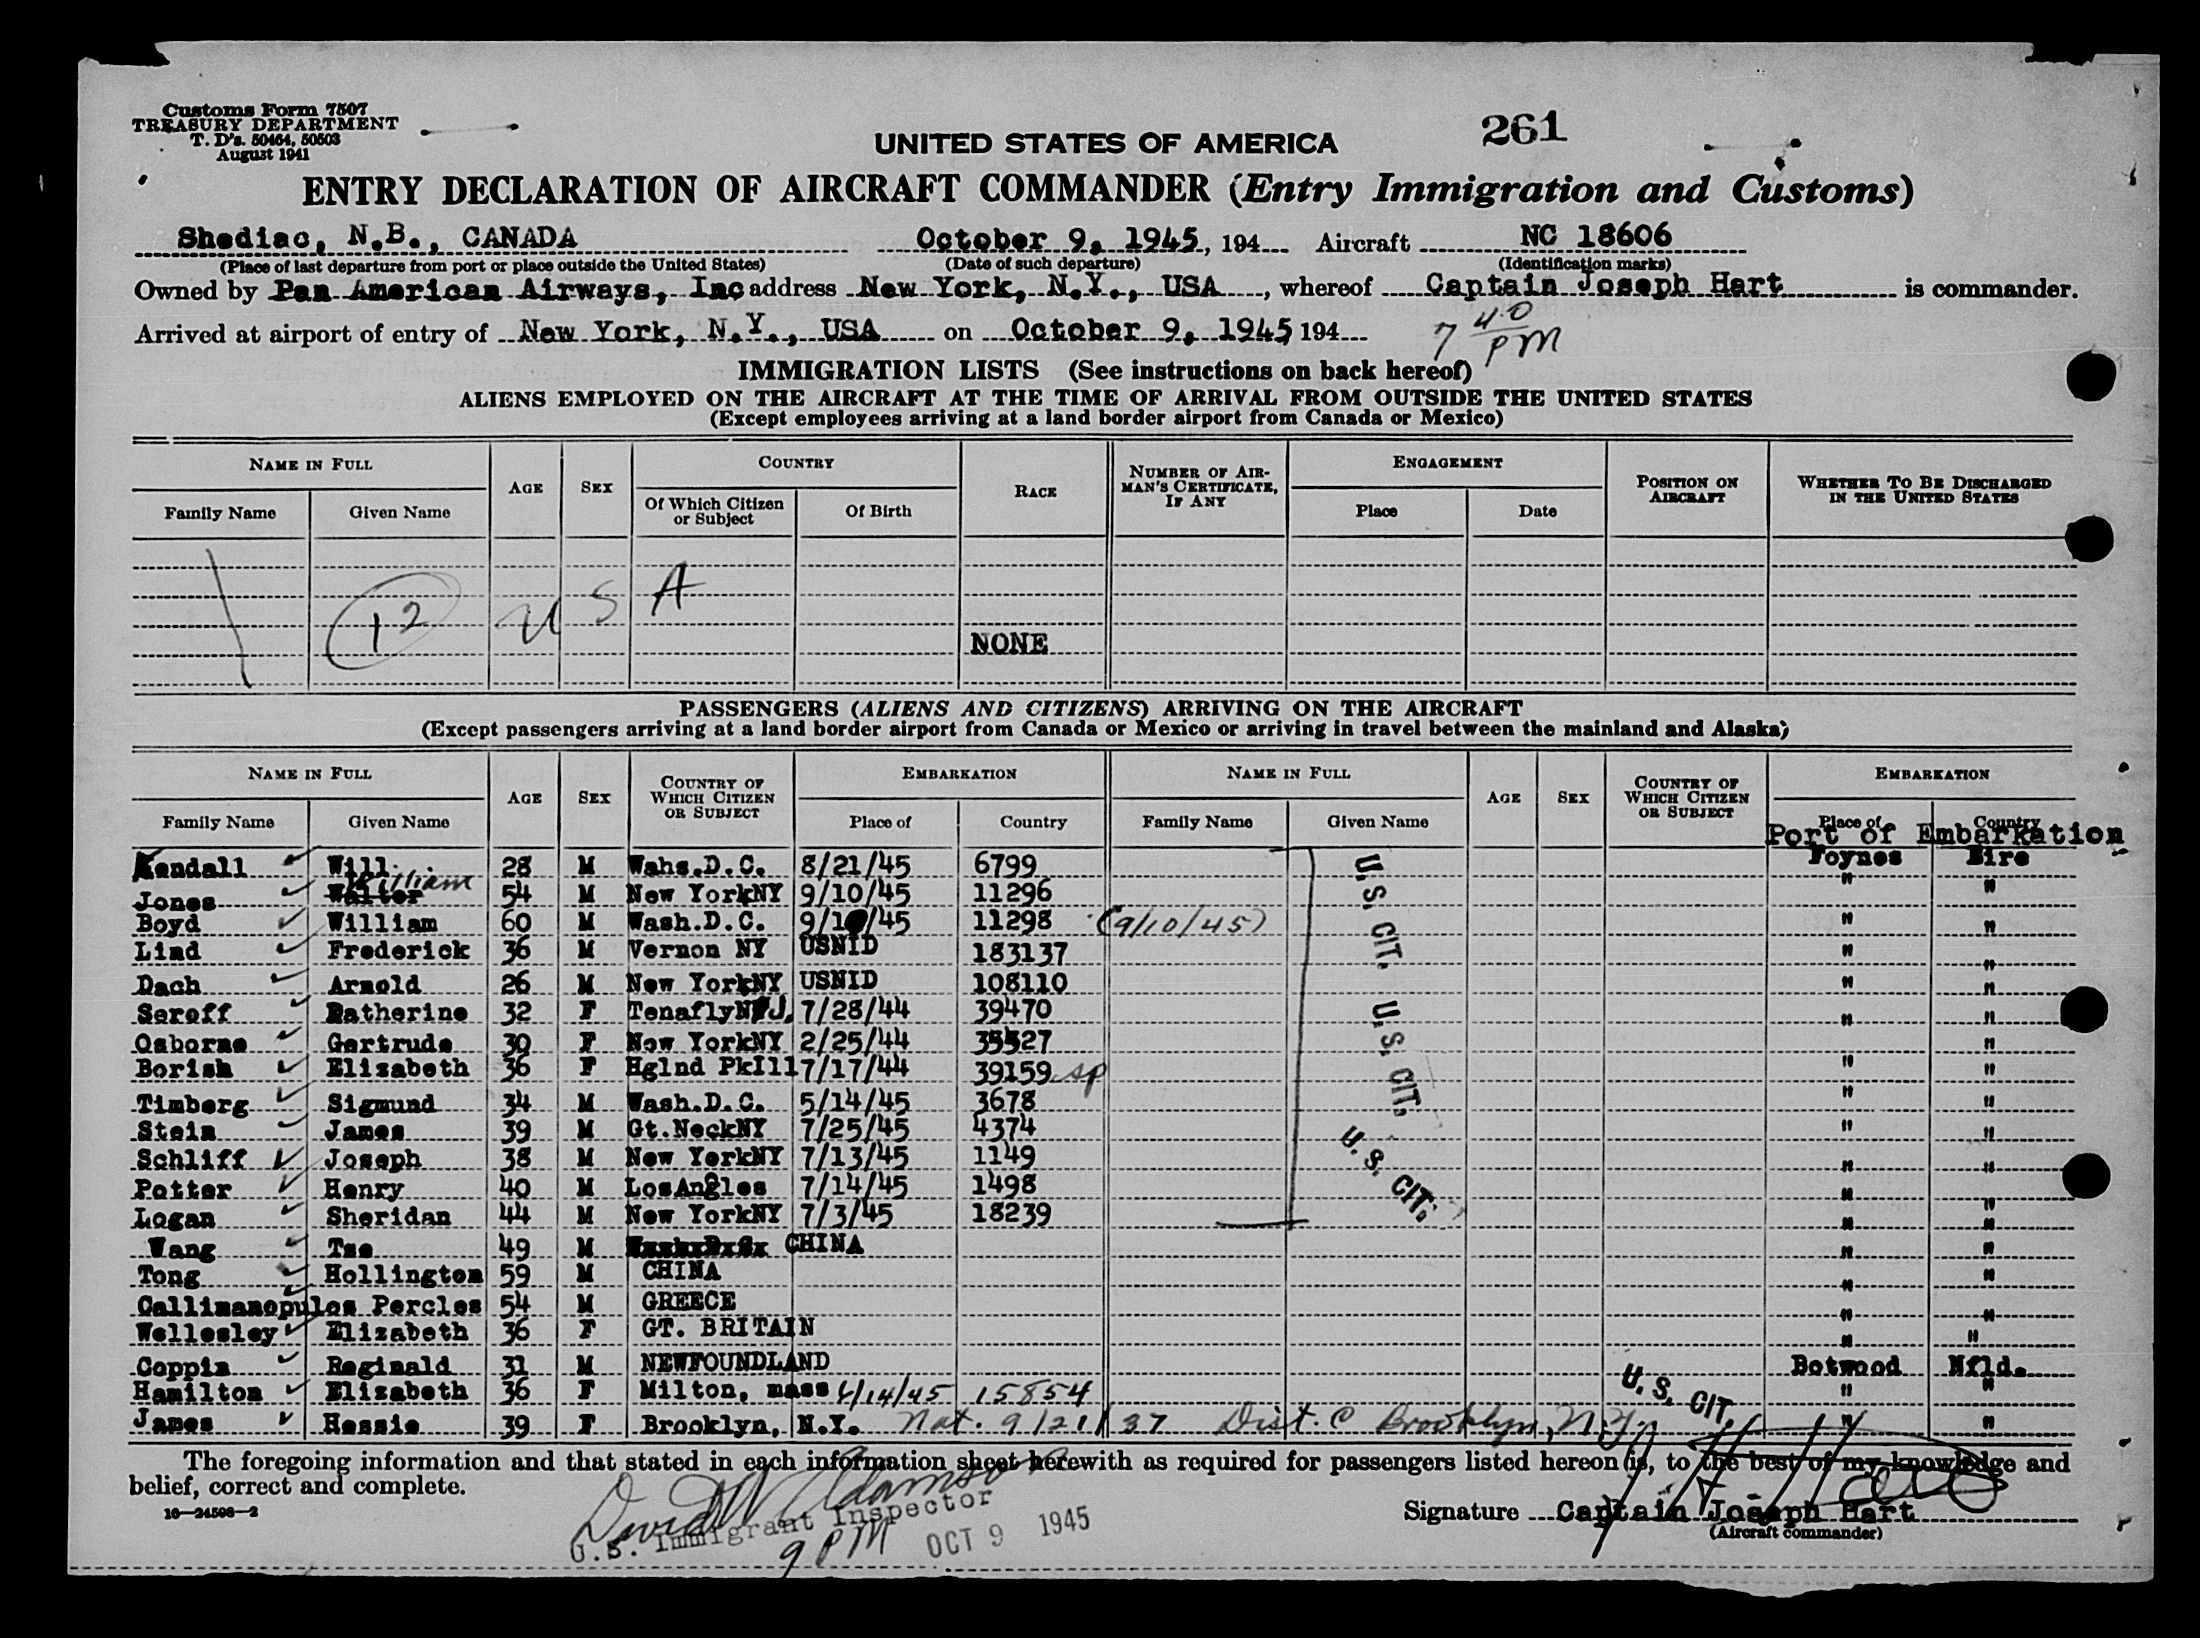 Customs Form 7507
TREASURY DEPARTMENT
T. D's. 50464, 50503
August 1941
261
UNITED STATES OF AMERICA
ENTRY DECLARATION OF AIRCRAFT COMMANDER (Entry Immigration and Customs)
Shediac, N.B., CANADA October 9, 1945, 194 Aircraft NC 18606
(Place of last departure from port or place outside the United States) (Date of such departure) (Identification marks)
Owned by Pan American Airways, Inc address New York, N.Y., USA, whereof Captain Joseph Hart is commander.
Arrived at airport of entry of New York, N.Y., USA on October 9, 1945 194 7 40 PM
IMMIGRATION LISTS (See instructions on back hereof)
ALIENS EMPLOYED ON THE AIRCRAFT AT THE TIME OF ARRIVAL FROM OUTSIDE THE UNITED STATES
(Except employees arriving at a land border airport from Canada or Mexico)
NAME IN FULL AGE SEX COUNTRY RACE NUMBER OF AIRMAN'S CERTIFICATE, IF ANY ENGAGEMENT POSITION ON AIRCRAFT WHETHER TO BE DISCHARGED IN THE UNITED STATES
Family Name Given Name Of Which Citizen or Subject Of Birth Place Date
12 U S A
NONE
PASSENGERS (ALIENS AND CITIZENS) ARRIVING ON THE AIRCRAFT
(Except passengers arriving at a land border airport from Canada or Mexico or arriving in travel between the mainland and Alaska)
NAME IN FULL AGE SEX COUNTRY OF WHICH CITIZEN OR SUBJECT EMBARKATION NAME IN FULL AGE SEX COUNTRY OF WHICH CITIZEN OR SUBJECT EMBARKATION
Family Name Given Name Place of Country Family Name Given Name Place of Country
Port of Embarkation
Kendall Will 28 M Wahs.D.C. 8/21/45 6799 U.S. CIT. Foynes Eire
Jones Walter William 54 M New YorkNY 9/10/45 11296 " "
Boyd William 60 M Wash.D.C. 9/10/45 11298 (9/10/45) " "
Lind Frederick 36 M Vernon NY USNID 183137 " "
Dach Arnold 26 M New YorkNY USNID 108110 " "
Seroff Katherine 32 F TenaflyNJ. 7/28/44 39470 U.S. CIT. " "
Osborne Gertrude 30 F New YorkNY 2/25/44 35527 "
Borish Elizabeth 36 F Hglnd PkIll 7/17/44 39159 sp " "
Timberg Sigmund 34 M Wash.D.C. 5/14/45 3678 " "
Stein James 39 M Gt.NeckNY 7/25/45 4374 U.S. CIT. " "
Schliff Joseph 38 M New YorkNY 7/13/45 1149 " "
Potter Henry 40 M LosAngles 7/14/45 1498 " "
Logan Sheridan 44 M New YorkNY 7/3/45 18239 " "
Wang Tse 49 M CHINA " "
Tong Hollington 59 M CHINA " "
Callimanopulos Percles 54 M GREECE " "
Wellesley Elizabeth 36 F GT. BRITAIN " "
Coppin Reginald 31 M NEWFOUNDLAND Botwood Nfld.
Hamilton Elizabeth 36 F Milton, mass 4/14/45 15854 U.S. CIT. " "
James Hessie 39 F Brooklyn, N.Y. Nat. 9/21/37 Dist. C Brooklyn, N.Y. " "
The foregoing information and that stated in each information sheet herewith as required for passengers listed hereon is, to the best of my knowledge and
belief, correct and complete.
16—24598—2
David W Adamson
U.S. Immigrant Inspector
9 PM OCT 9 1945
Signature Captain Joseph Hart
(Aircraft commander)